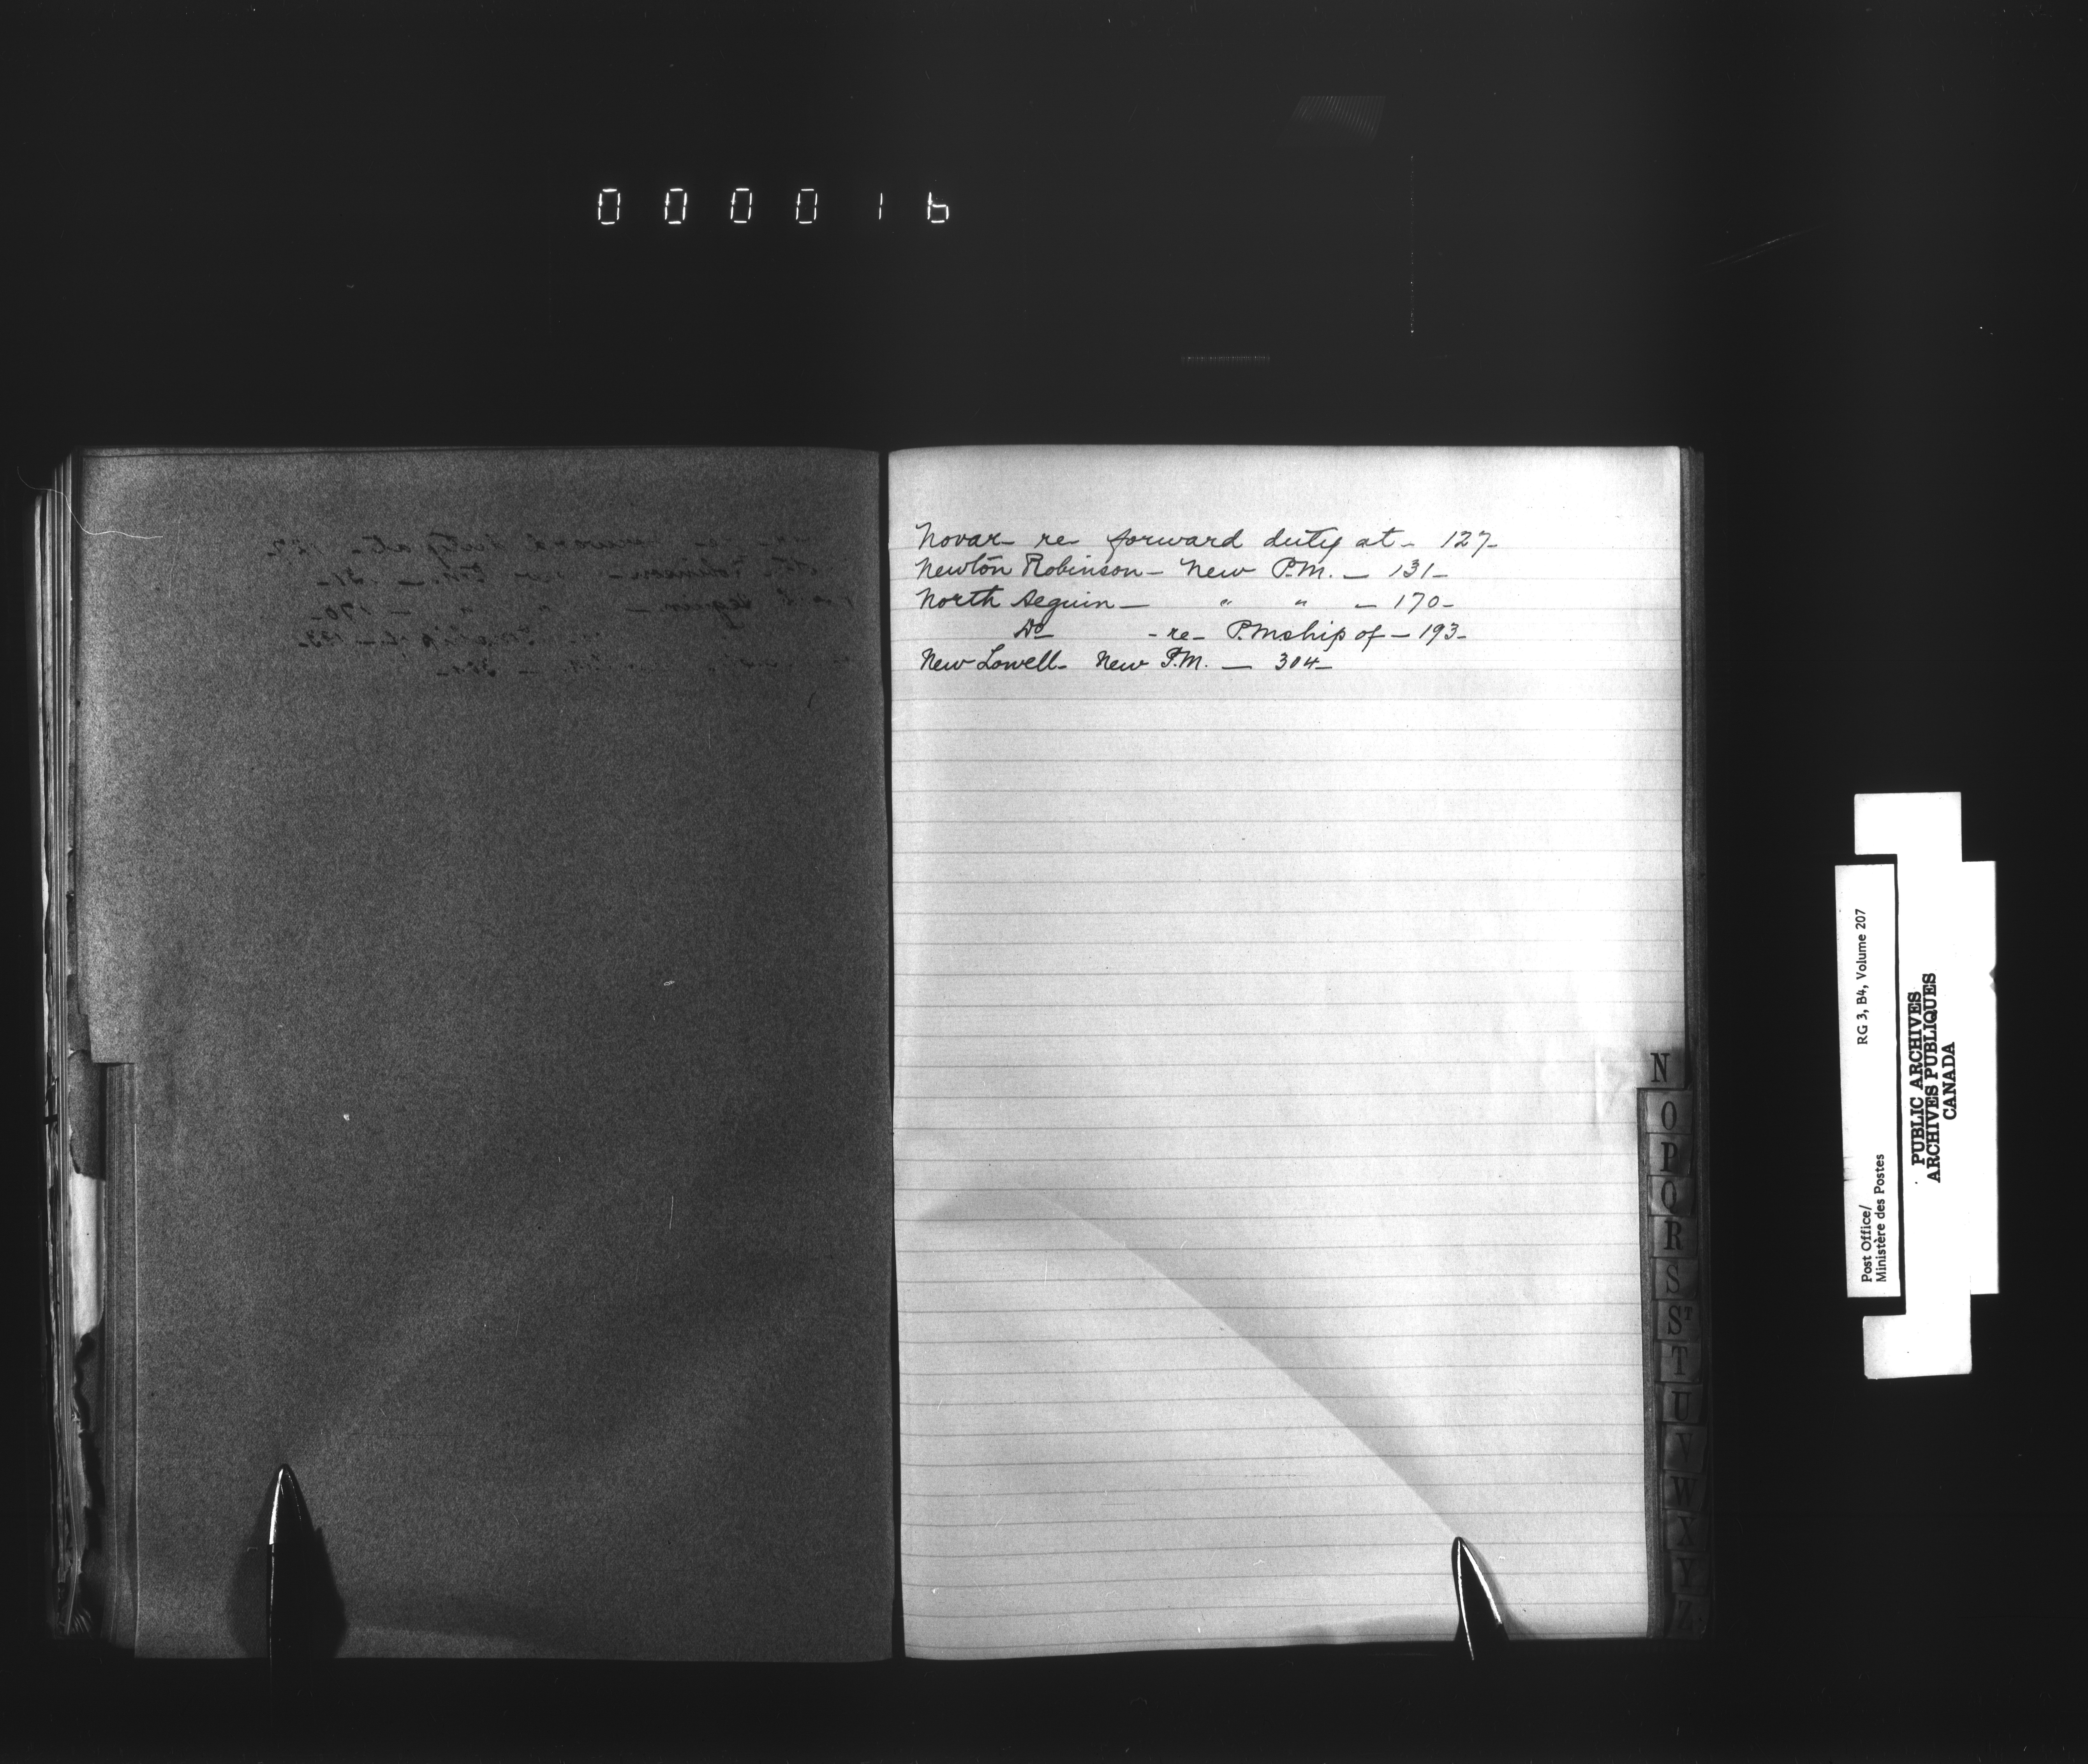 000016
Novar re forward duty at - 127-
Newton Robinson - New P.M. - 131-
North Seguin - " " - 170-
Do - re - P.Mship of - 193-
New Lowell - New P.M. - 304-
N
O
P
Q
R
S
ST
T
U
V
W
X
Y
Z
Post Office/ RG 3, B4, Volume 207
Ministère des Postes
PUBLIC ARCHIVES
ARCHIVES PUBLIQUES
CANADA